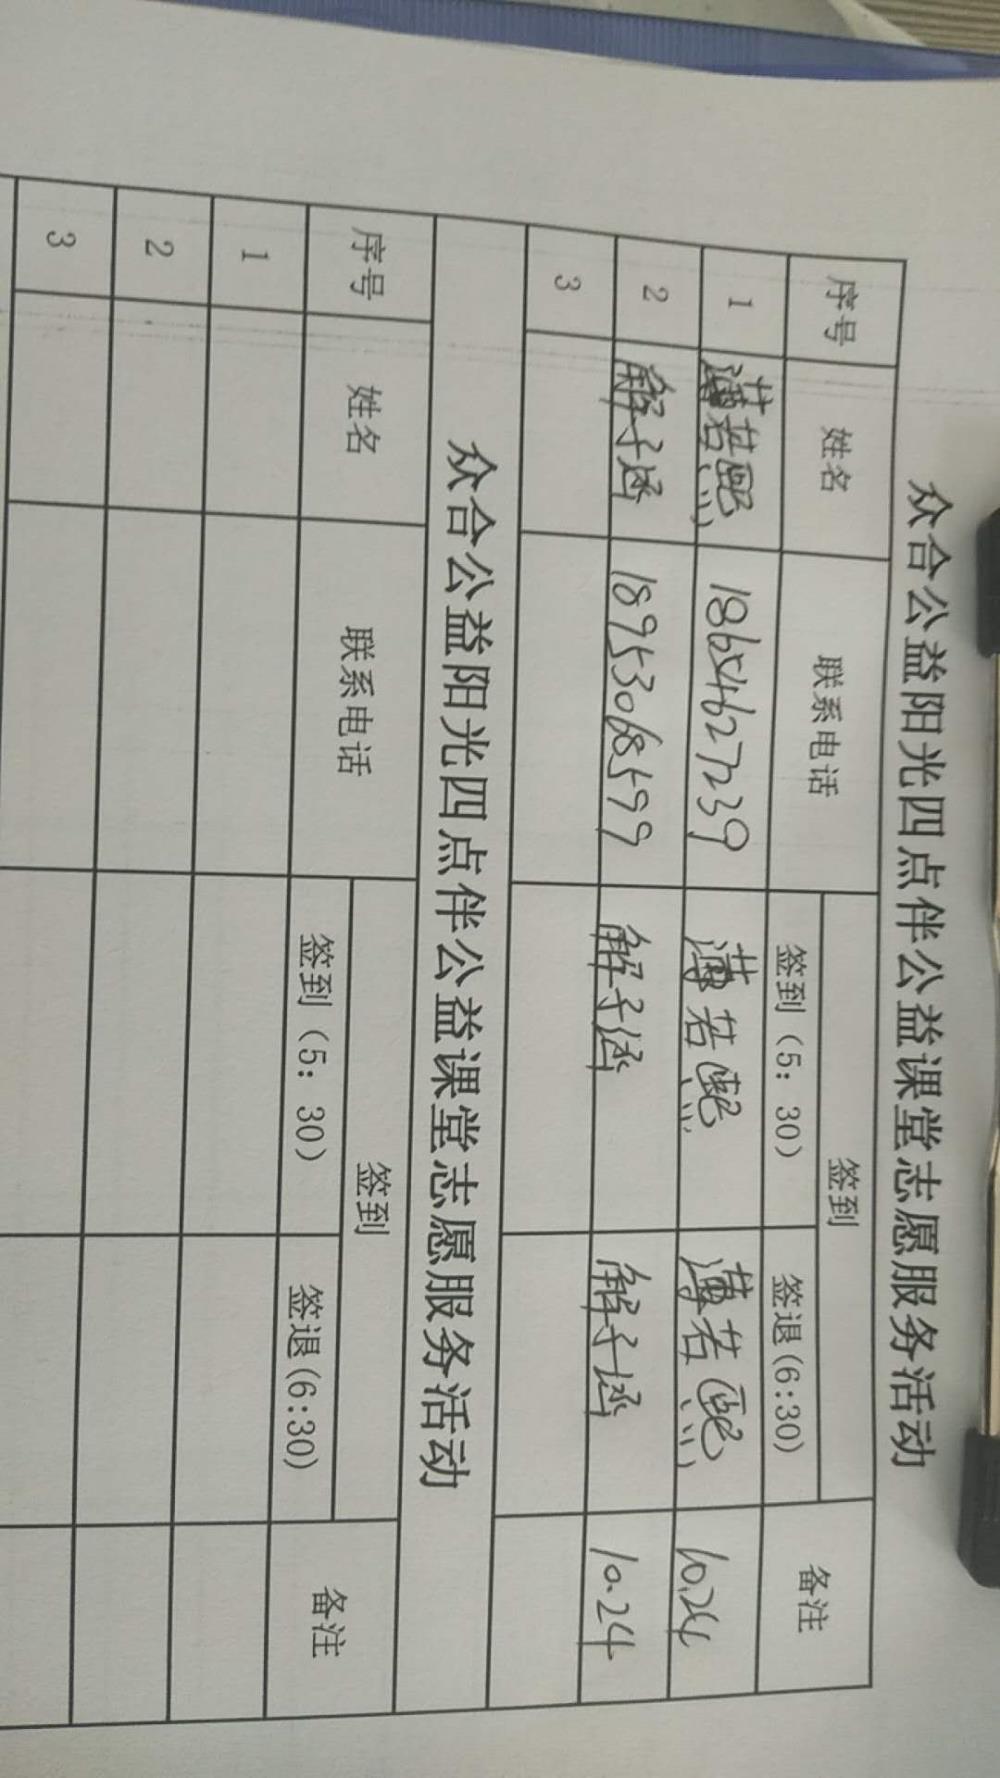 众合公益阳光四点伴公益课堂志愿服务活动
序号 姓名 联系电话 签到 备注
签到（5：30） 签退(6:30)
1 薄若熙 18654627239 薄若熙 薄若熙 10.24
2 解子涵 18953068599 解子涵 解子涵 10.24
3
众合公益阳光四点伴公益课堂志愿服务活动
序号 姓名 联系电话 签到 备注
签到（5：30） 签退(6:30)
1
2
3